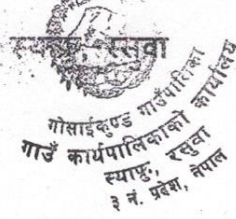 स्याफ्रु, रसुवा
गोसाईकुण्ड गाउँपालिका
गाउँ कार्यपालिकाको कार्यालय
स्याफ्रु, रसुवा
३ नं. प्रदेश, नेपाल